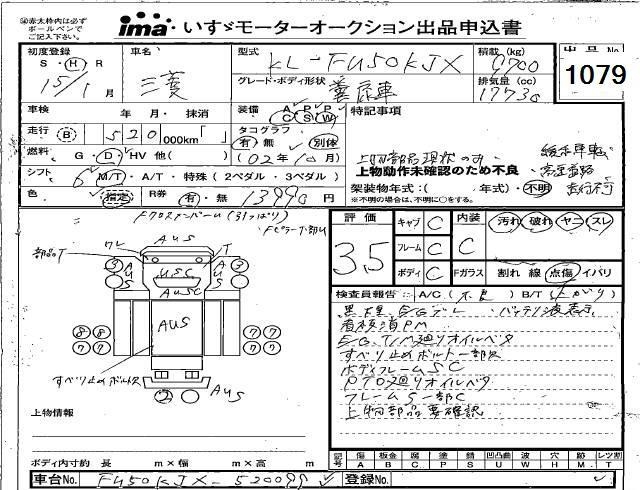 ㊟赤太枠内は必ず
ボールペンで
ご記入下さい。
ima いすゞモーターオークション出品申込書
初度登録 車名 型式 積載 (kg) 出品No.
S・H・R KL-FU50KJX 9700
15/1月 三菱 グレード・ボディ形状 排気量 (cc) 1079
17730
車検 年 月・抹消 装備 A P P C S W 特記事項
走行 B 520 000km「 」 タコグラフ 有・無 別体
燃料 G・D・HV 他( ) (02年10月) 上物部品現状のみ 緩和車
上物動作未確認のため不良
シフト 6 M/T・A/T・特殊(2ペダル・3ペダル) 架装物年式:( 年式)・不明
色 指定 R券 有・無 13990円 ※不明の場合は、不明に○をする。
Fクロスメンバーム(31つぱり) Fピラー下部U
AUS 評価 キャブ C 内装 汚れ・破れ・ヤニ・スレ
部品T ワレ T 3.5 フレーム C C
③ AUS USC AUS ③ ボディ C Fガラス 割れ 線 点傷 イバリ
AUSC
検査員報告 A/C(不良) B/T(上がり)
AUS 黒煙 E/Gブレ バッテリ液表示
⑧⑧ ⑦⑦ 看板消PM
⑧⑧ ⑦⑦ E/G. T/M廻りオイルベタ
すべり止めボルト一部欠
すべり止めボルト欠 ボディフレームSC
PTO廻りオイルベタ
② AUS フレームS一部C
上物情報 上物部品要確認
ボディ内寸約 長 m×幅 m×高 m
記号 傷 A 板金 B 腐 C 塗 P 錆 S 凹凸曲 U 波 W 穴 H 跡 M レツ割 T
車台No. FU50KJX-520099 登録No.